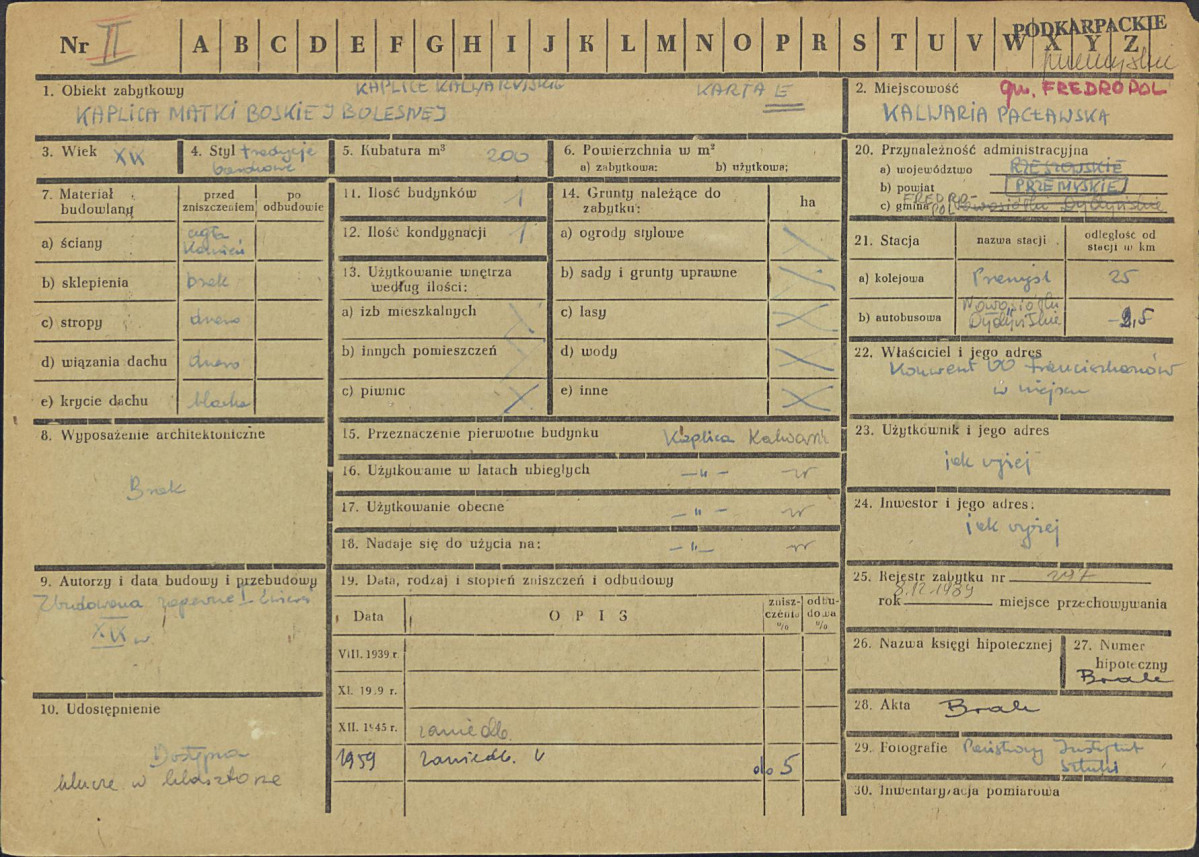 Nr II A B C D E F G H I J K L M N O P R S T U V W X Y Z
PODKARPACKIE
przemyskie
1. Obiekt zabytkowy KAPLICE KALWARYJSKIE KARTA E
KAPLICA MATKI BOSKIEJ BOLESNEJ
2. Miejscowość gm. FREDROPOL
KALWARIA PACŁAWSKA
3. Wiek XIX
4. Styl tradycje
barokowe
5. Kubatura m³ 200
6. Powierzchnia w m²
a) zabytkowa: b) użytkowa:
7. Materiał budowlany
przed zniszczeniem
po odbudowie
a) ściany cegła
kamień
b) sklepienia brak
c) stropy drewno
d) wiązania dachu drewno
e) krycie dachu blacha
8. Wyposażenie architektoniczne
Brak
9. Autorzy i data budowy i przebudowy
Zbudowana zapewne I
XIX w.
10. Udostępnienie
Dostępna
klucze w klasztorze
11. Ilość budynków 1
12. Ilość kondygnacji 1
13. Użytkowanie wnętrza
według ilości:
a) izb mieszkalnych
b) innych pomieszczeń
c) piwnic
14. Grunty należące do
zabytku:
ha
a) ogrody stylowe
b) sady i grunty uprawne
c) lasy
d) wody
e) inne
15. Przeznaczenie pierwotne budynku Kaplica Kalwaryj.
16. Użytkowanie w latach ubiegłych – „ –
17. Użytkowanie obecne – „ –
18. Nadaje się do użycia na: – „ –
19. Data, rodzaj i stopień zniszczeń i odbudowy
Data OPIS
znisz-
czenia
%
odbu-
dowa
%
VIII. 1939 r.
XI. 19.9 r.
XII. 1945 r. zaniedb.
1959 zaniedb. do 5
20. Przynależność administracyjna
a) województwo RZESZOWSKIE
b) powiat PRZEMYSKIE
c) gmina FREDRO-
POL Nowosiółki Dydyńskie
21. Stacja nazwa stacji odległość od
stacji w km
a) kolejowa Przemyśl 25
b) autobusowa Nowosiółki
Dydyńskie 2,5
22. Właściciel i jego adres
Konwent OO Franciszkanów
w miejscu
23. Użytkownik i jego adres
jak wyżej
24. Inwestor i jego adres:
jak wyżej
25. Rejestr zabytku nr 297
8.12.1989
rok miejsce przechowywania
26. Nazwa księgi hipotecznej
27. Numer
hipoteczny
Brak
28. Akta Brak
29. Fotografie Państwowy Instytut
Sztuki
30. Inwentaryzacja pomiarowa